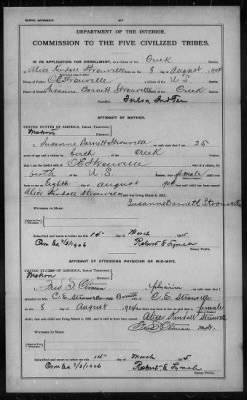 DEPARTMENT OF THE INTERIOR.
COMMISSION TO THE FIVE CIVILIZED TRIBES.
IN RE APPLICATION FOR ENROLLMENT, as a citizen of the Creek Nation,
of Alice Kindall Strouvelle born on the 8 day of August, 1904
Name of Father: C E Strouvelle a citizen of the U.S. Nation.
Name of Mother: Susanne Barnett Strouvelle a citizen of the Creek Nation.
Tulsa Ind Ter
AFFIDAVIT OF MOTHER.
UNITED STATES OF AMERICA, Indian Territory,
Western DISTRICT.
I, Susanne Barnett Strouvelle, on oath state that I am 25
years of age and a citizen by birth of the Creek Nation;
that I am the lawful wife of C E Strouvelle, who is a citizen, by
birth of the U.S. Nation; that a female child was
born to me on Eighth day of August, 1904; that said child has been named
Alice Kindall Strouvelle, and was living March 4, 1905.
Susanne Barnett Strouvelle
Witnesses to Mark:
Subscribed and sworn to before me this 15th day of March, 1905
Com Ex 7/3/1906 Robert E Lynch
Notary Public.
AFFIDAVIT OF ATTENDING PHYSICIAN OR MID-WIFE.
UNITED STATES OF AMERICA, Indian Territory,
Western DISTRICT.
I, Fred S Clinton, a physician, on oath state that I
attended on Mrs. C. E. Strouvelle, wife of C. E. Strouvelle
on the 8 day of August, 1904; that there was born to her on said date a female
child; that said child was living March 4, 1905, and is said to have been named Alice Kindall Strouvelle
Fred S Clinton M.D.
Witnesses to Mark:
Subscribed and sworn to before me this 15th day of March, 1905
Com Ex 7/3/1906 Robert E Lynch
Notary Public.